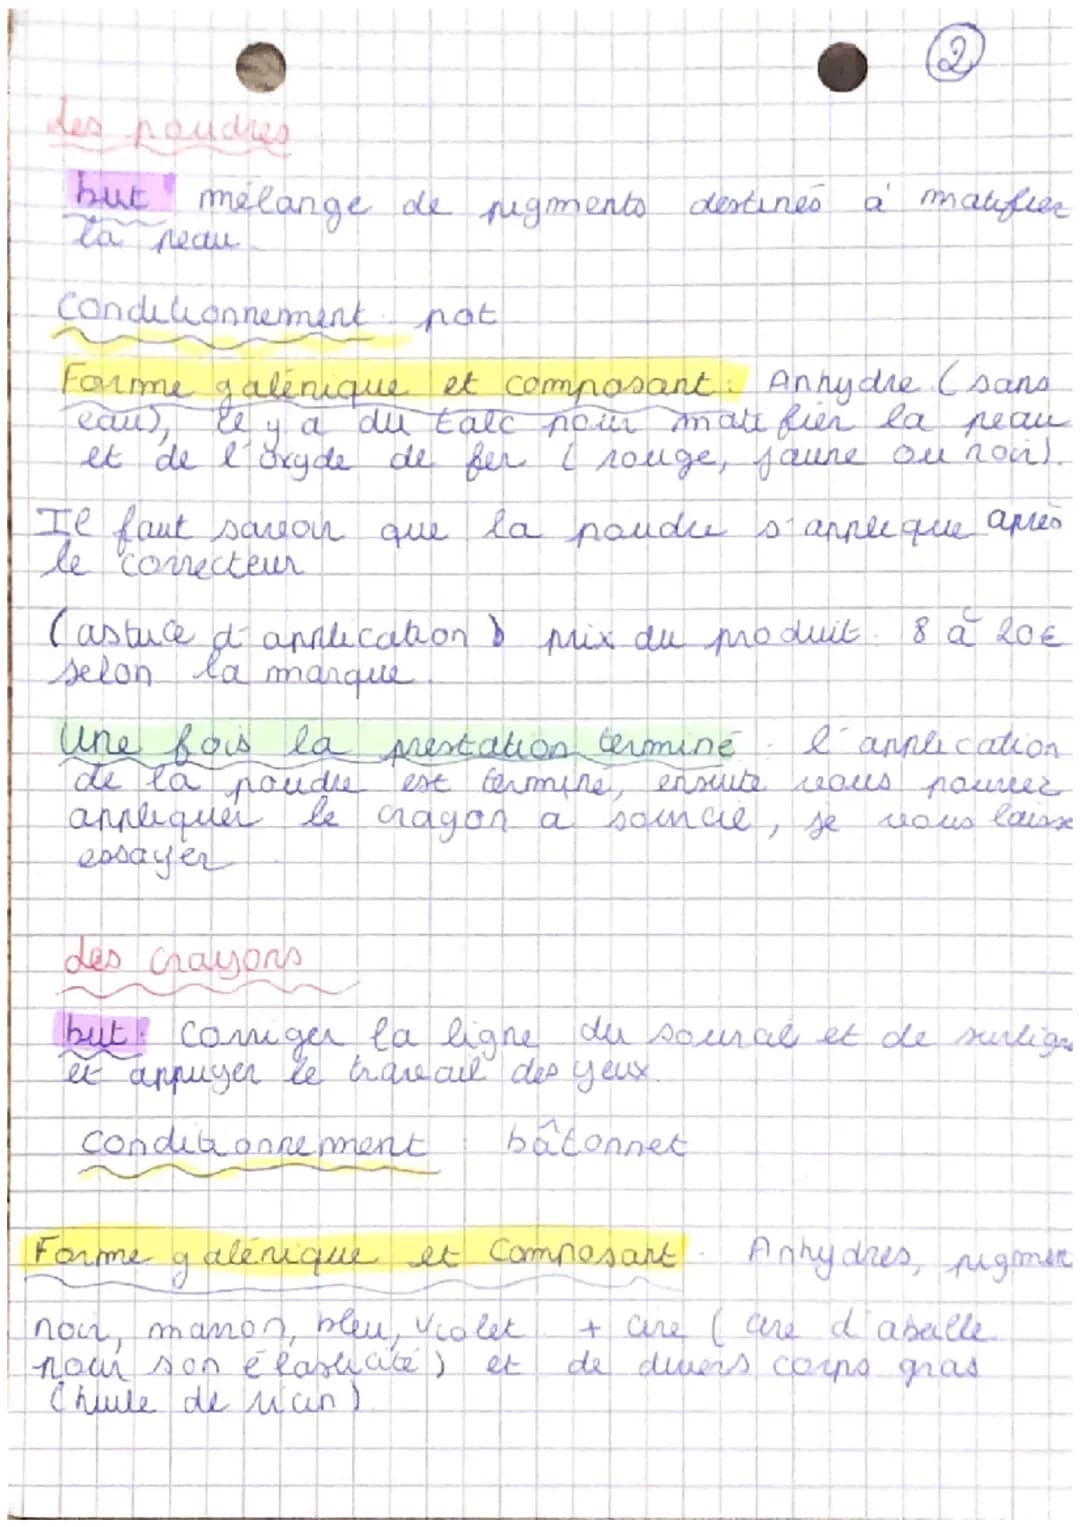 2
des poudres
but : mélange de pigments destinés à matifier
la peau.
Conditionnement : pot
Forme galénique et composant : Anhydre (sans
eau), il y a du talc pour matifier la peau
et de l'oxyde de fer (rouge, jaune ou noir).
Il faut savoir que la poudre s'applique après
le correcteur
(astuce d'application) prix du produit : 8 à 20€
selon la marque.
Une fois la prestation terminé : l'application
de la poudre est terminé, ensuite vous pouvez
appliquer le crayon a sourcil, je vous laisse
essayer
des crayons
but : Corriger la ligne du sourcil et de surlign
et appuyer le travail des yeux.
conditionnement : bâtonnet
Forme galénique et Composant : Anhydres, pigmen
noir, marron, bleu, violet + cire (cire d'abeille
pour son élasticité) et de divers corps gras
(huile de ricin)